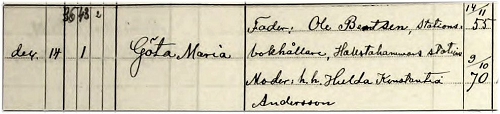 35 43 2
14/11
Fader: Ole Berntsen, stations-
55
dec. 14 1 Göta Maria
bokhållare, Hallstahammars station
9/10
Moder: h.h. Hulda Konstantia
70
Andersson